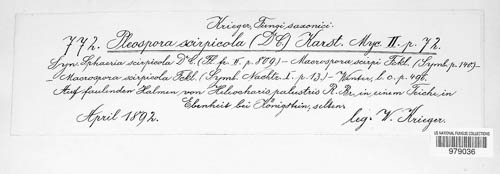 Krieger, Fungi saxonici.
772. Pleospora scirpicola (DC) Karst. Myc. II. p. 72.
Syn. Sphaeria scirpicola DC (Fl. fr. II. p. 809.) – Macrospora scirpi Fckl. (Symb. p. 140) –
Macrospora scirpicola Fckl. (Symb. Nachtr. I. p. 13.) – Winter, l. c. p. 496.
Auf faulenden Halmen von Heleocharis palustris R. Br. in einem Teiche in
Ebenheit bei Königstein, selten.
April 1892. leg. W. Krieger.
US NATIONAL FUNGUS COLLECTIONS
979036